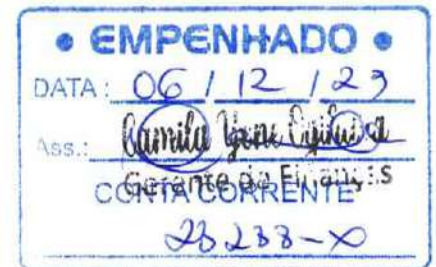 • EMPENHADO •
DATA: 06 / 12 / 23
Ass.: Camila
Gerente de Finanças
CONTA CORRENTE